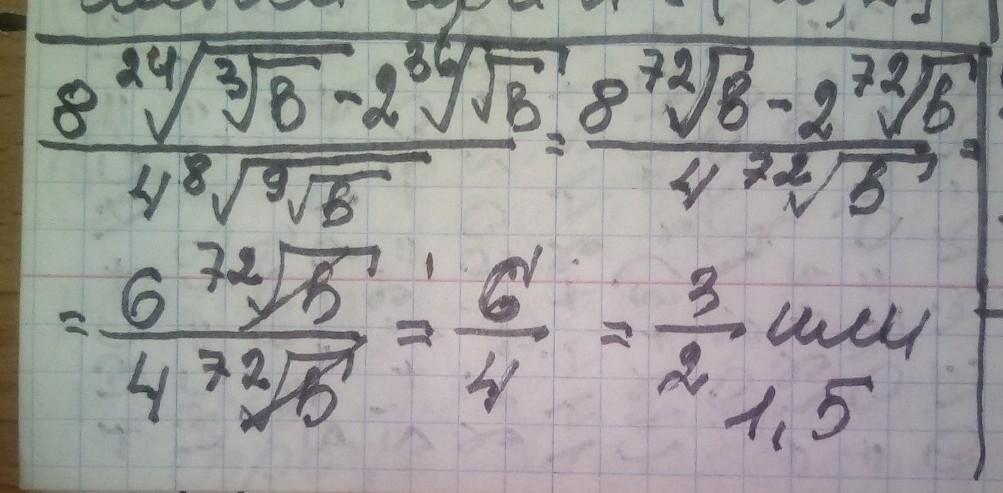 \frac{8 \sqrt[24]{\sqrt[3]{в}} - 2 \sqrt[36]{\sqrt{в}}}{4 \sqrt[8]{\sqrt[9]{в}}} = \frac{8 \sqrt[72]{в} - 2 \sqrt[72]{в}}{4 \sqrt[72]{в}} =
= \frac{6 \sqrt[72]{в}}{4 \sqrt[72]{в}} = \frac{6}{4} = \frac{3}{2} или
1,5